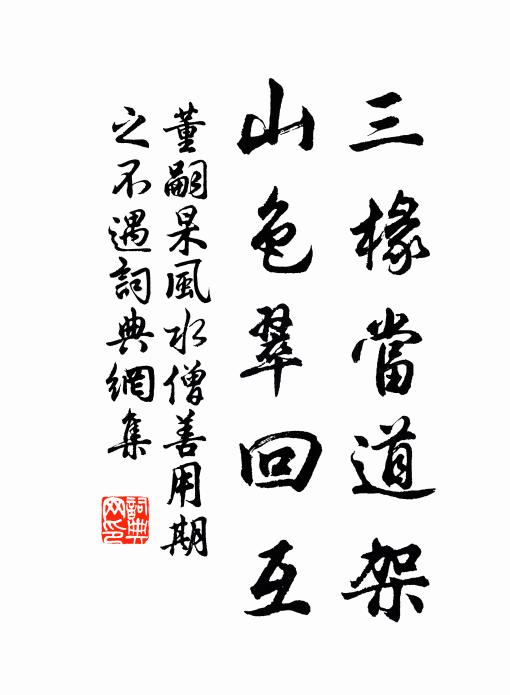 三椽當道架
山色翠回互
董嗣杲風水僧善用期
之不遇詞典網集
詞典